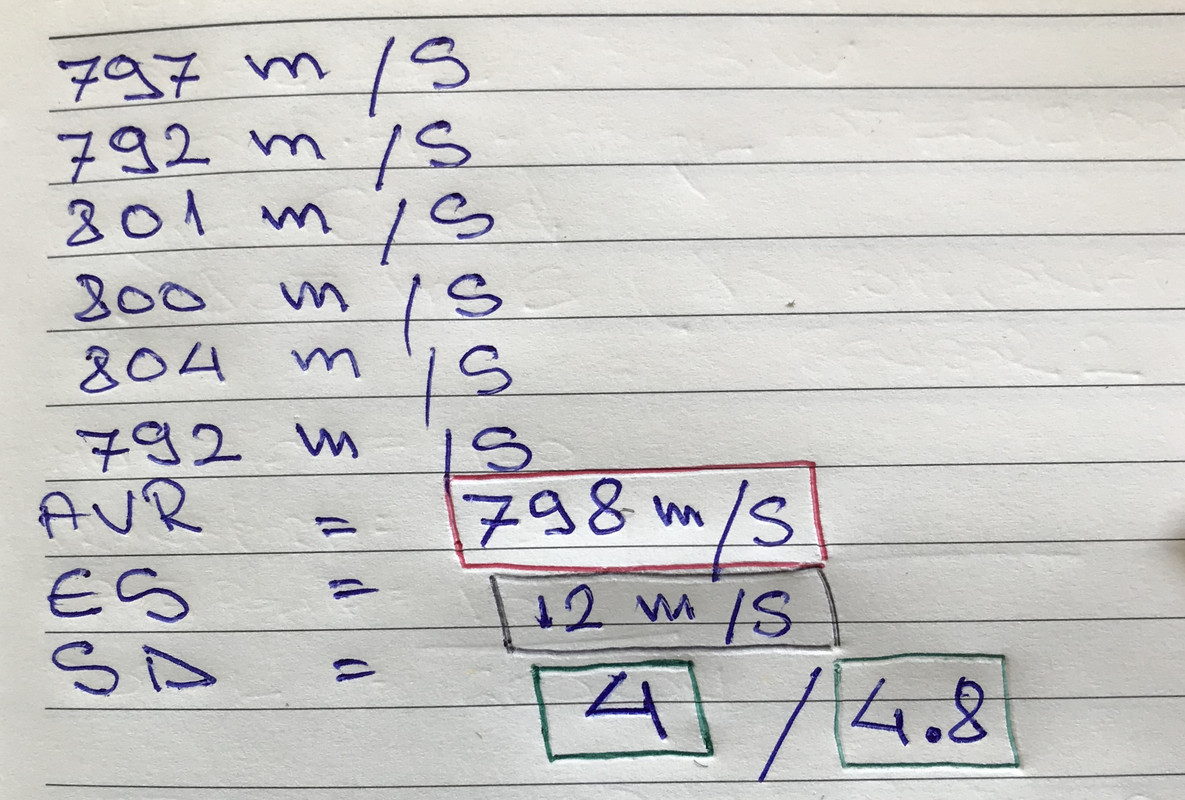 797 m/S
792 m/S
801 m/S
800 m/S
804 m/S
792 m/S
AVR = 798 m/S
ES = 12 m/S
SD = 4 / 4.8